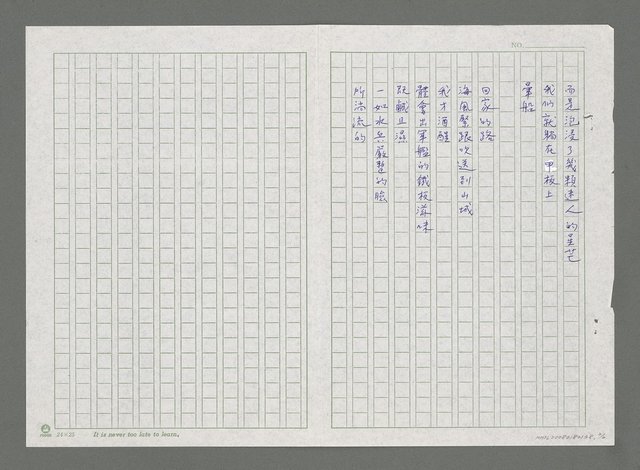 NO.
而是泡浸了幾顆迷人的星芒
我們就躺在甲板上
暈船
回家的路
海風緊跟吹送到山城
我才酒醒
體會出軍艦的鐵板滋味
既鹹且濕
一如水兵嚴整的臉
所淌流的
24×25 It is never too late to learn.